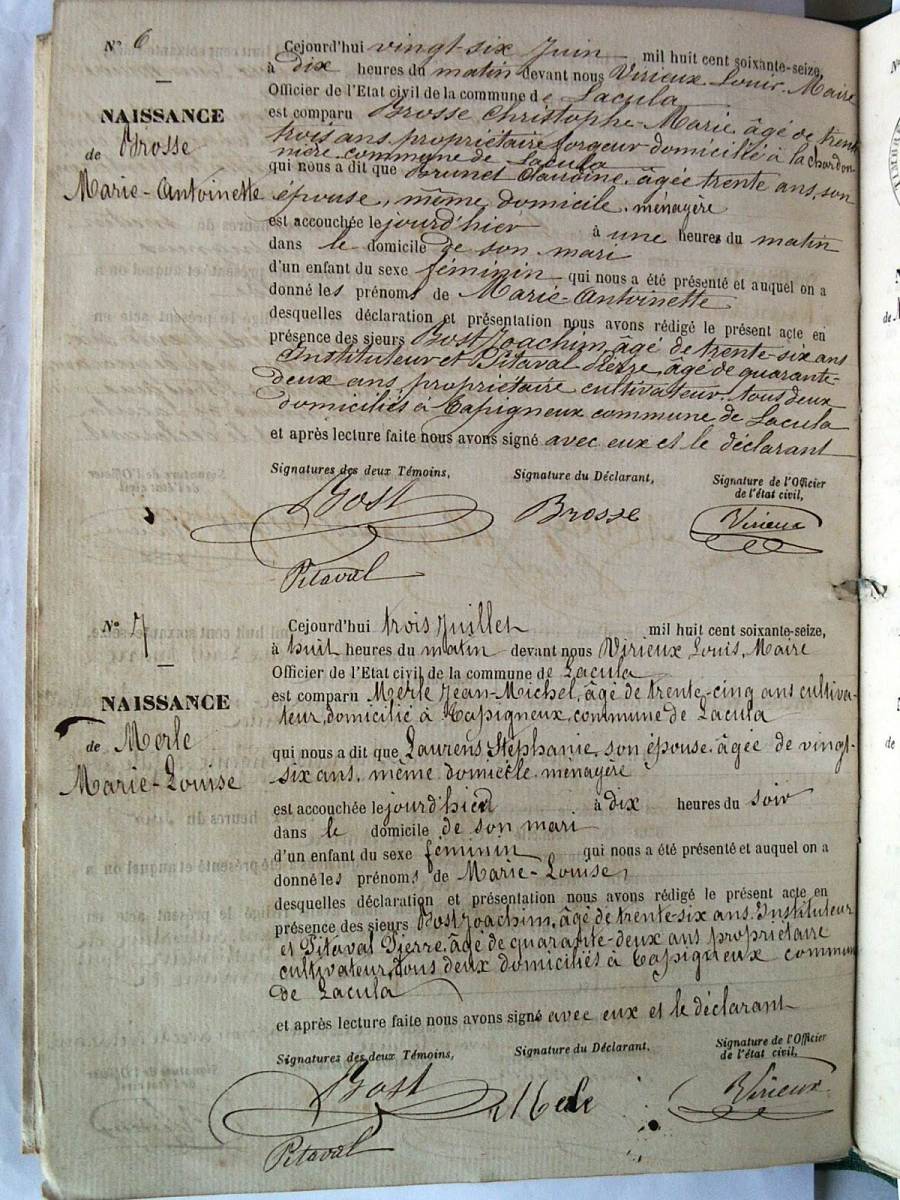 N° 6
NAISSANCE
de Brosse
Marie-Antoinette
Cejourd'hui vingt-six Juin mil huit cent soixante-seize,
à dix heures du matin devant nous Virieux Louis, Maire
Officier de l'Etat civil de la commune de Lacula
est comparu Brosse Christophe-Marie, âgé de trente
trois ans, propriétaire forgeur domicilié à la chardon-
nière commune de Lacula
qui nous a dit que Brunet Claudine, âgée trente ans, son
épouse, même domicile, ménagère
est accouchée le jourd'hier à une heures du matin
dans le domicile de son mari
d'un enfant du sexe féminin qui nous a été présenté et auquel on a
donné les prénoms de Marie-Antoinette
desquelles déclaration et présentation nous avons rédigé le présent acte en
présence des sieurs Bost Joachim, âgé de trente-six ans
Instituteur et Pitaval Pierre, âgé de quarante-
deux ans propriétaire cultivateur, tous deux
domiciliés à Tapigneux commune de Lacula
et après lecture faite nous avons signé avec eux et le déclarant
Signatures des deux Témoins, Signature du Déclarant, Signature de l'Officier
de l'état civil,
Bost Brosse Virieux
Pitaval
N° 7
NAISSANCE
de Merle
Marie-Louise
Cejourd'hui trois Juillet mil huit cent soixante-seize,
à huit heures du matin devant nous Virieux Louis, Maire
Officier de l'Etat civil de la commune de Lacula
est comparu Merle Jean-Michel, âgé de trente-cinq ans cultiva-
teur, domicilié à Tapigneux, commune de Lacula
qui nous a dit que Laurens Stéphanie, son épouse, âgée de vingt-
six ans, même domicile ménagère
est accouchée le jourd'hier à dix heures du soir
dans le domicile de son mari
d'un enfant du sexe féminin qui nous a été présenté et auquel on a
donné les prénoms de Marie-Louise,
desquelles déclaration et présentation nous avons rédigé le présent acte en
présence des sieurs Bost Joachim, âgé de trente-six ans, Instituteur
et Pitaval Pierre, âgé de quarante-deux ans propriétaire
cultivateur, tous deux domiciliés à Tapigneux commune
de Lacula
et après lecture faite nous avons signé avec eux et le déclarant
Signatures des deux Témoins, Signature du Déclarant, Signature de l'Officier
de l'état civil,
Bost Virieux
Pitaval